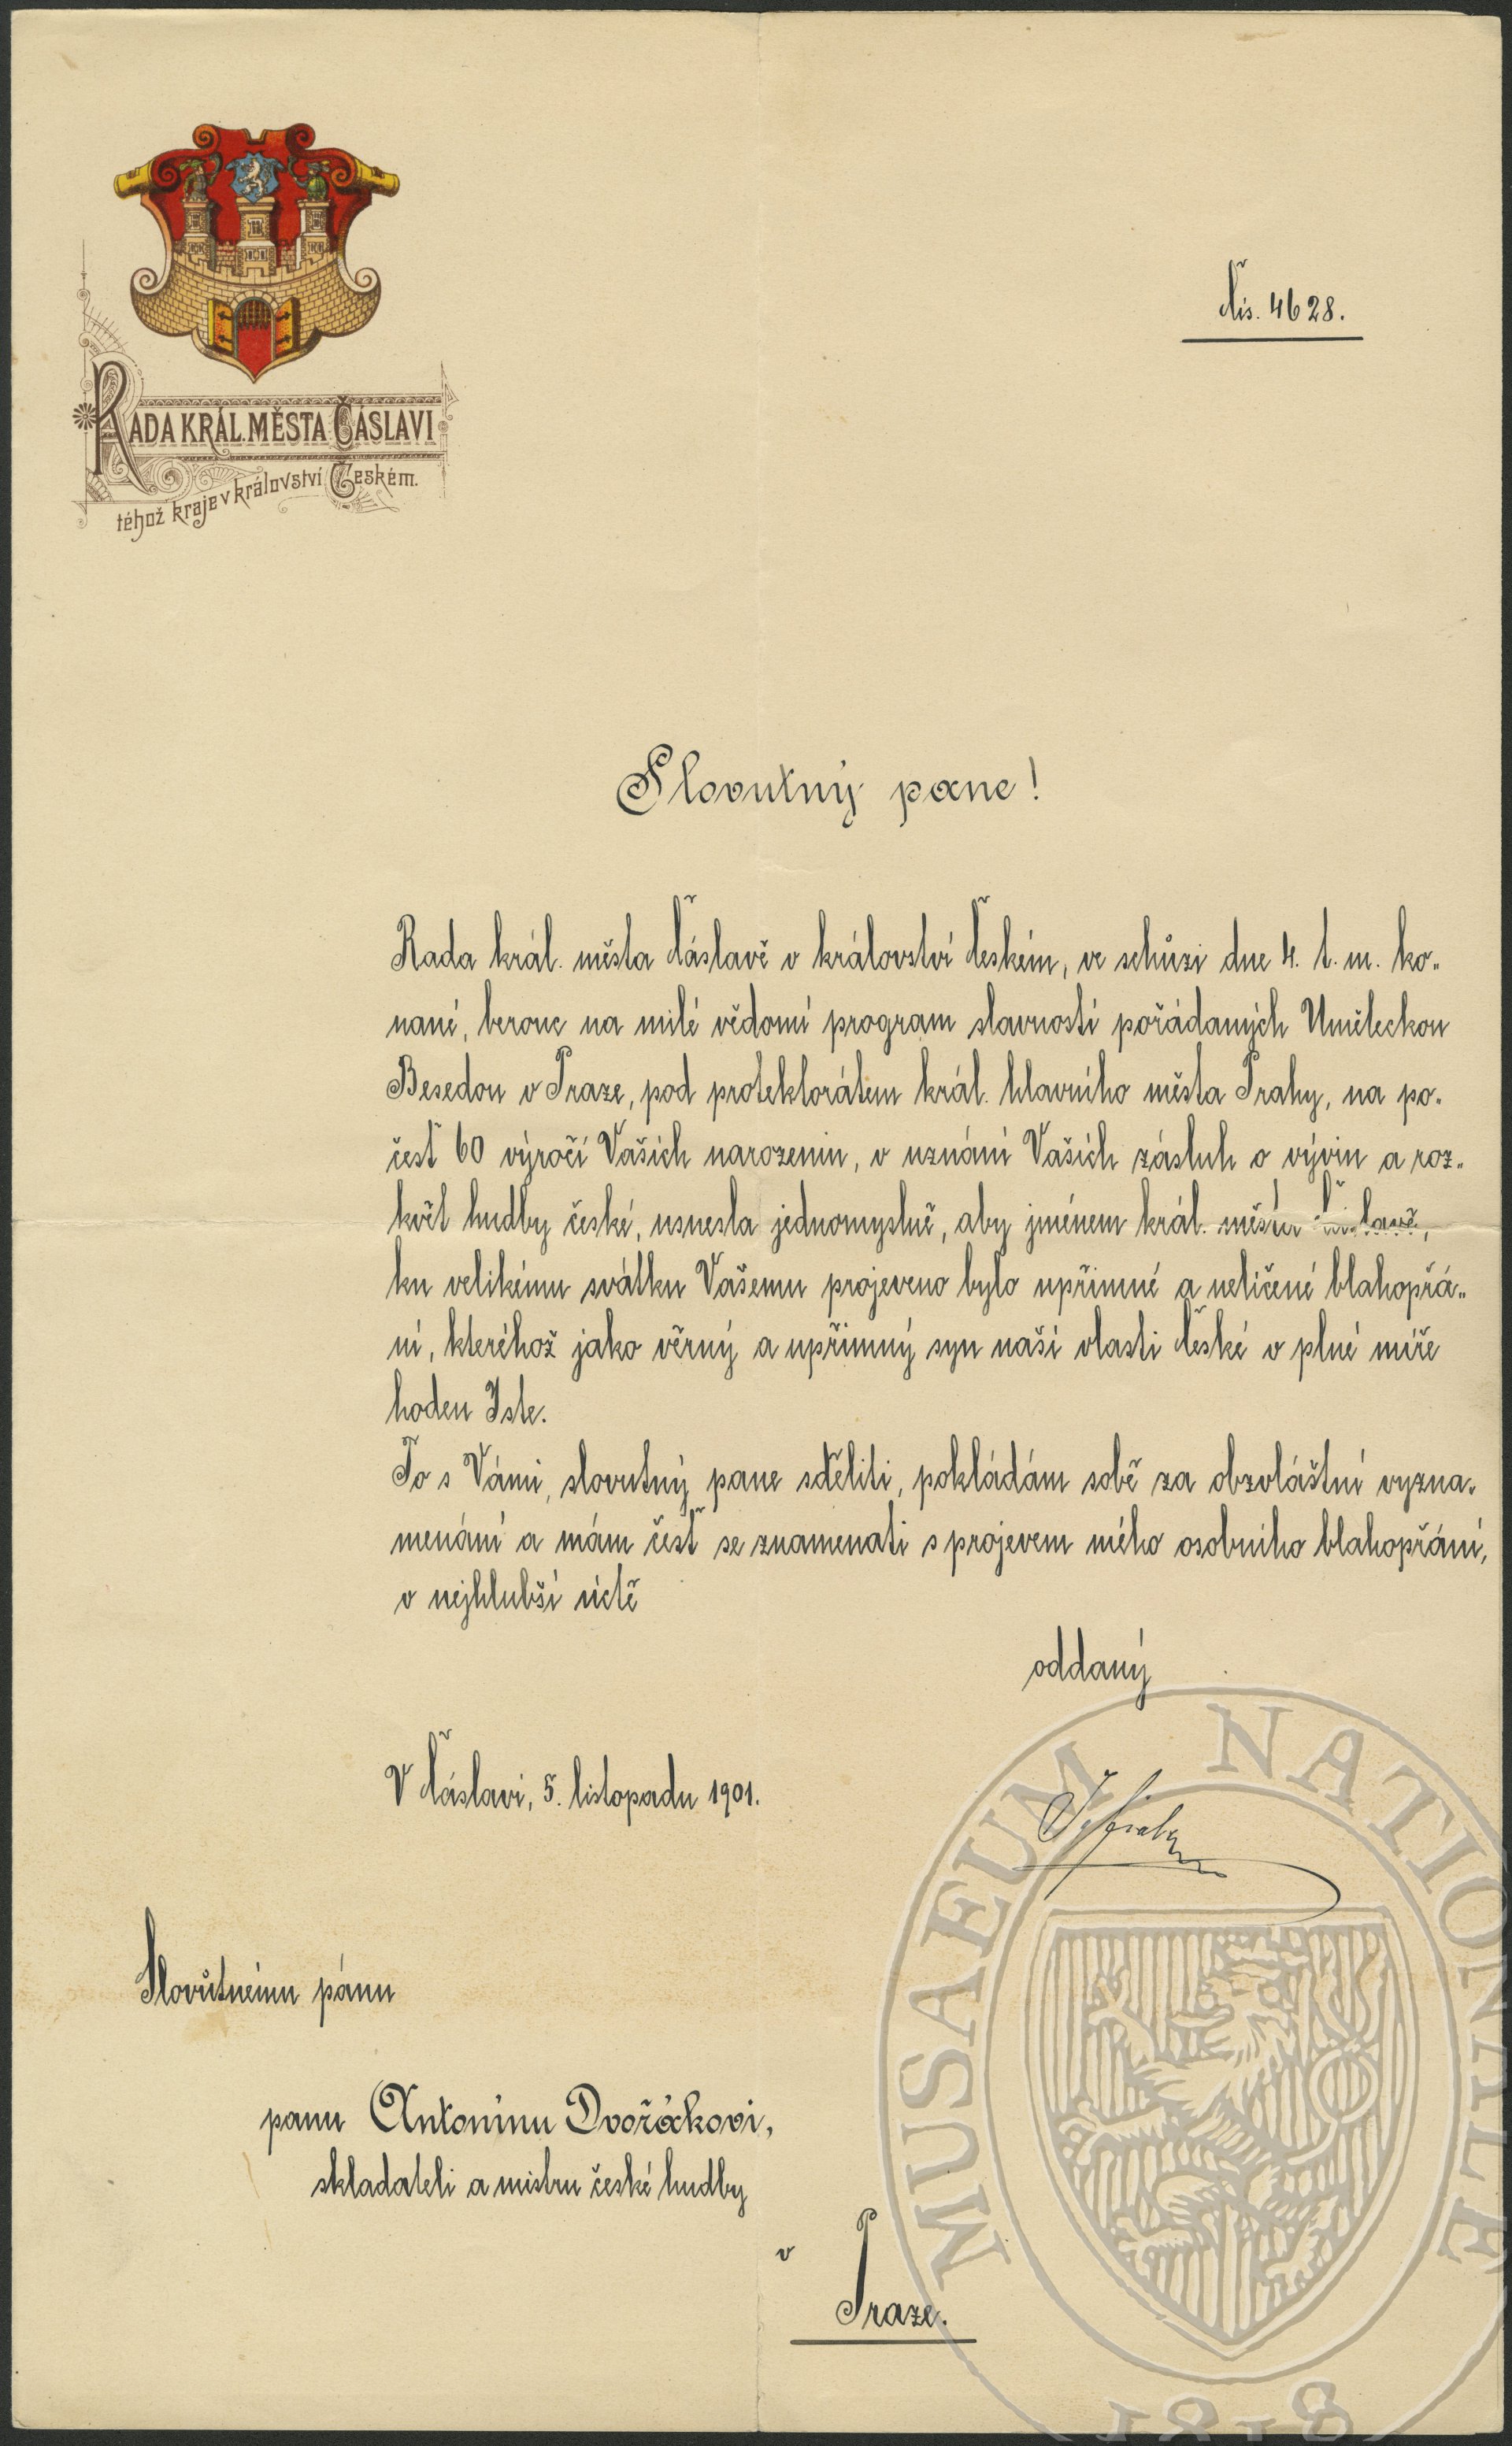 RADA KRÁL. MĚSTA ČÁSLAVI
téhož kraje v království Českém.
Čís. 4628.
Slovutný pane!
Rada král. města Čáslavě v království Českém, ve schůzi dne 4. t. m. ko-
nané, berouc na milé vědomí program slavností pořádaných Uměleckou
Besedou v Praze, pod protektorátem král. hlavního města Prahy, na po-
česť 60 výročí Vašich narozenin, v uznání Vašich zásluh o vývin a roz-
květ hudby české, usnesla jednomyslně, aby jménem král. města Čáslavě,
ku velikému svátku Vašemu projeveno bylo upřímné a nelíčené blahopřá-
ní, kteréhož jako věrný a upřímný syn naší vlasti České v plné míře
hoden Jste.
To s Vámi, slovutný pane sděliti, pokládám sobě za obzvláštní vyzna-
menání a mám česť se znamenati s projevem mého osobního blahopřání,
v nejhlubší úctě
oddaný
V Čáslavi, 5. listopadu 1901.
Slovútnému pánu
panu Antonínu Dvořákovi,
skladateli a mistru české hudby
v
Praze.
MUSAEUM NATIONALE
1818